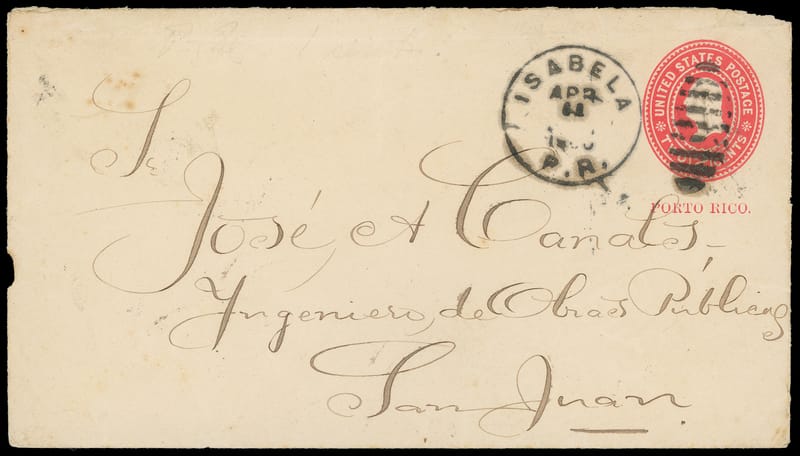 ISABELA
APR
P.R.
UNITED STATES POSTAGE
TWO CENTS
PORTO RICO.
Sr
José A Canals,
Yngeniero, de Obras Públicas
San Juan.